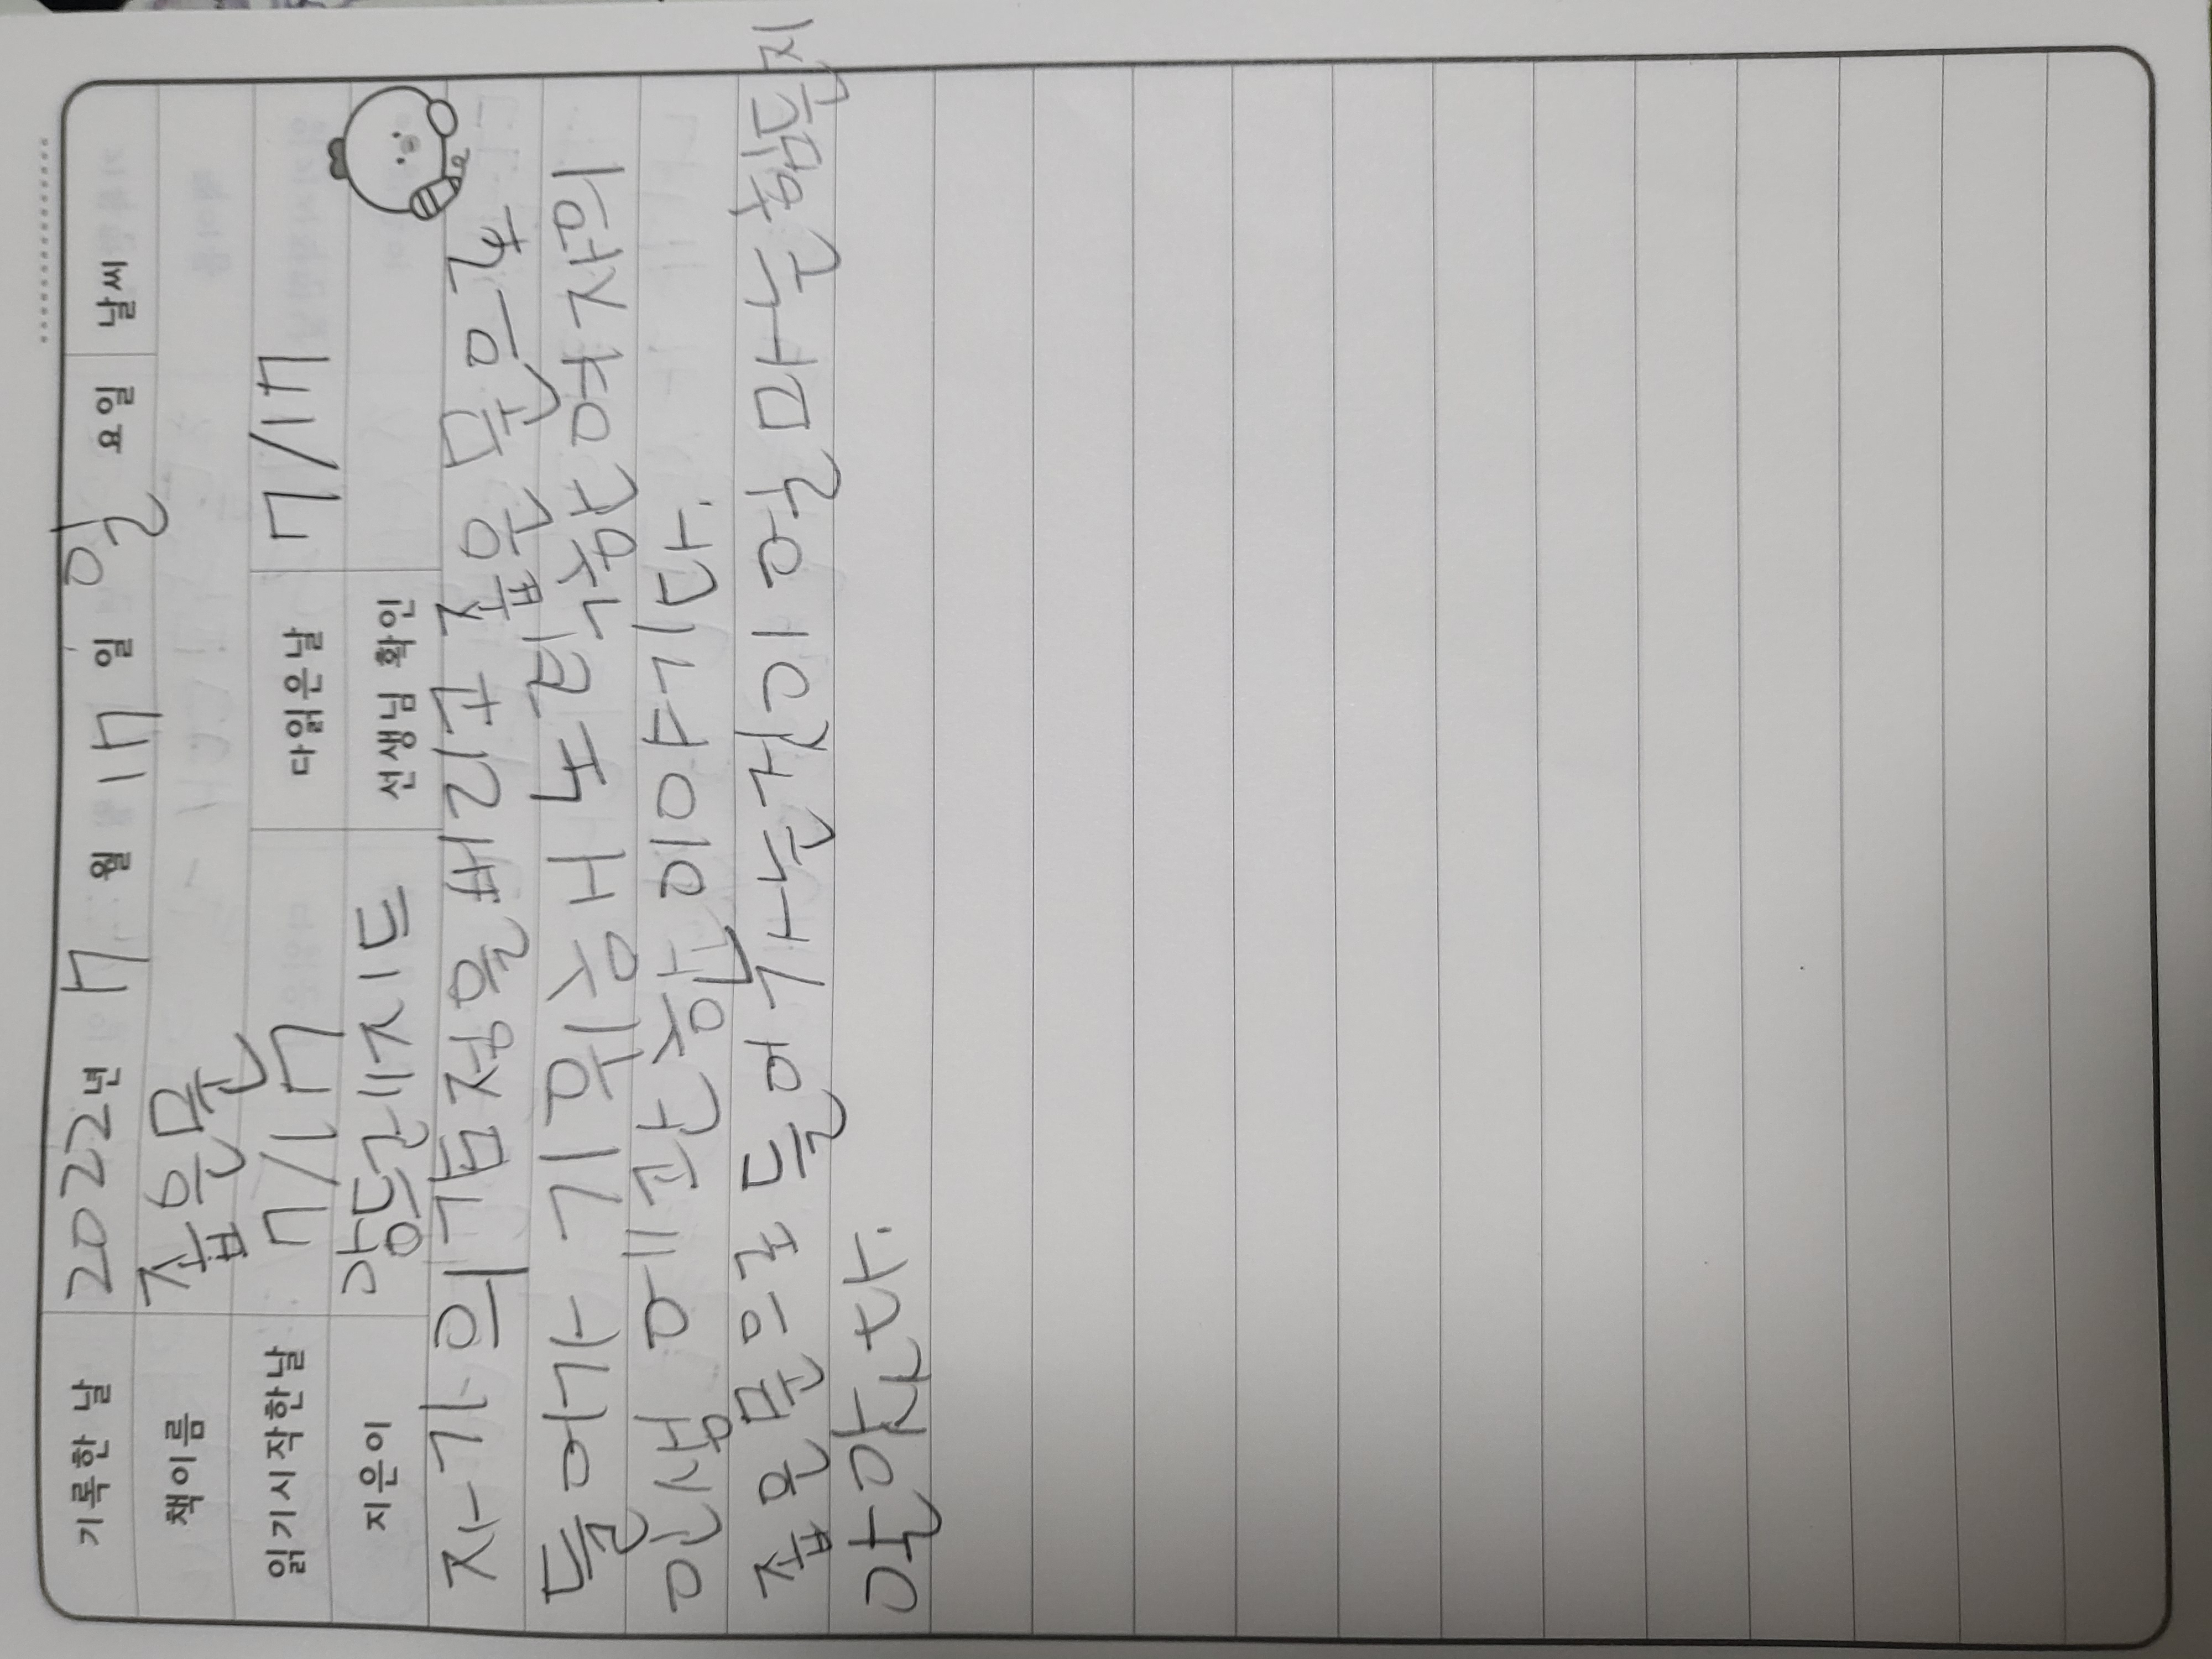 기록한 날 2022년 7월 17일 일요일 날씨
책이름 좁은문
읽기시작한날 7/17 다읽은날 7/17
지은이 앙드레지드 선생님 확인
자가의 감정을 버리고 좁은 문으로
들어가 기 위해 노력한 여자의
인생 에 관한 이야기다.
좁은문으로 들어가는것이 얼마는힘든지
알았다.